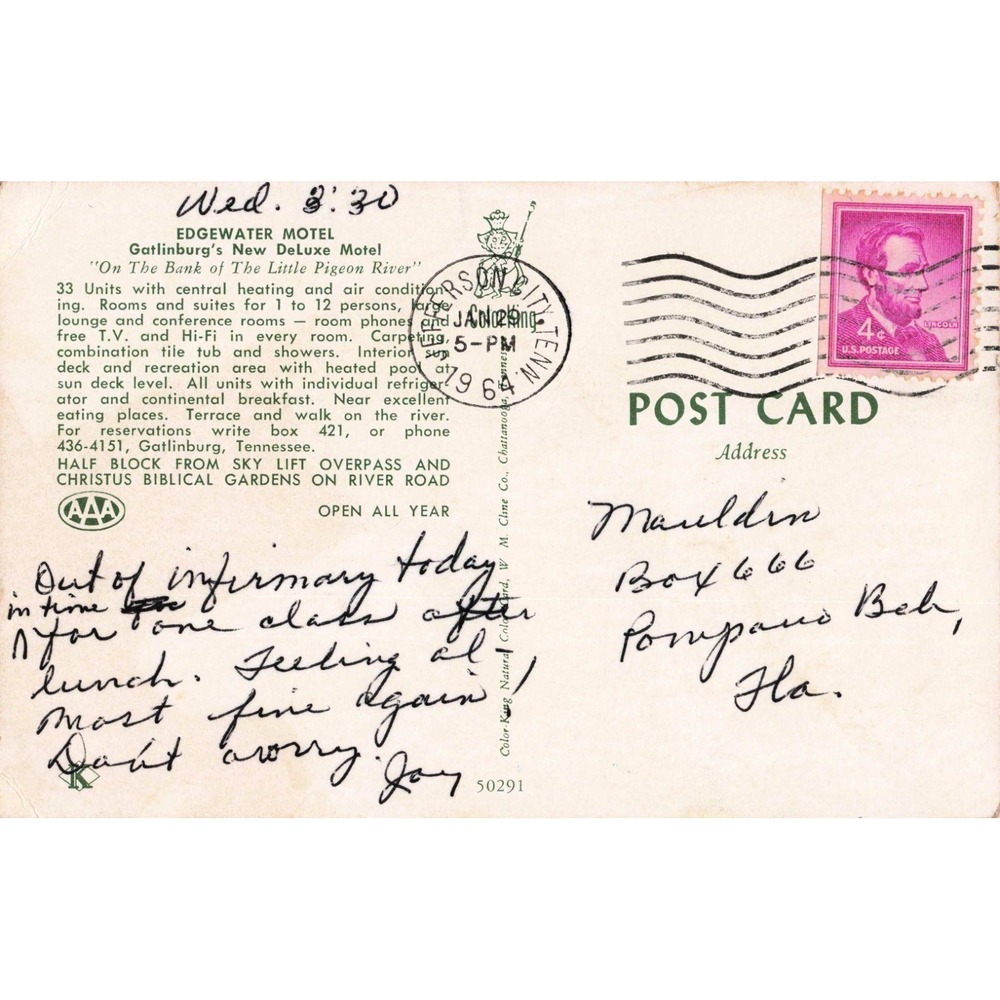 Wed. 3:30
EDGEWATER MOTEL
Gatlinburg's New DeLuxe Motel
"On The Bank of The Little Pigeon River"
33 Units with central heating and air condition-
ing. Rooms and suites for 1 to 12 persons,
lounge and conference rooms — room phones and
free T.V. and Hi-Fi in every room. Carpeting,
combination tile tub and showers. Interior
deck and recreation area with heated pool at
sun deck level. All units with individual refriger-
ator and continental breakfast. Near excellent
eating places. Terrace and walk on the river.
For reservations write box 421, or phone
436-4151, Gatlinburg, Tennessee.
HALF BLOCK FROM SKY LIFT OVERPASS AND
CHRISTUS BIBLICAL GARDENS ON RIVER ROAD
AAA
OPEN ALL YEAR
Out of infirmary today
in time
for one class after
lunch. Feeling al
most fine again!
Don't worry.
Joy
K
50291
ColorKing
Color-King Natural Color Card, W. M. Cline Co., Chattanooga, Tennessee
JEFFERSON CITY, TENN.
JAN 29
5-PM
1964
4¢
LINCOLN
U.S. POSTAGE
POST CARD
Address
Mauldin
Box 666
Pompano Bch,
Fla.